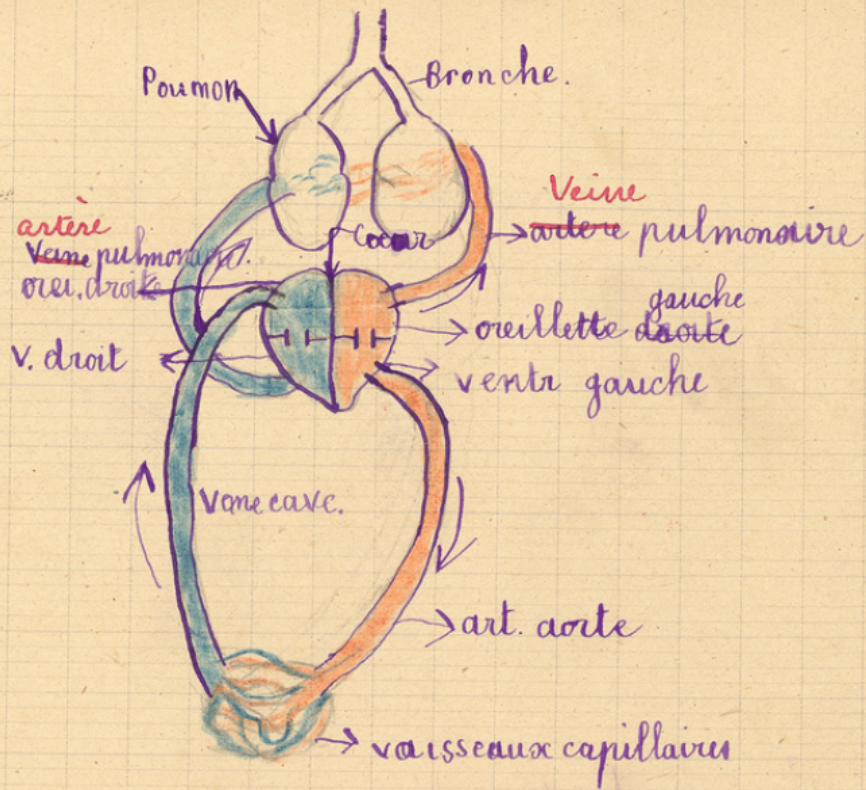 Bronche.
Poumon
Veine
artère
artere pulmonaire
Coeur
Veine pulmonaire.
orei. droite
gauche
oreillette droite
V. droit
ventr gauche
Vene cave.
art. aorte
vaisseaux capillaires